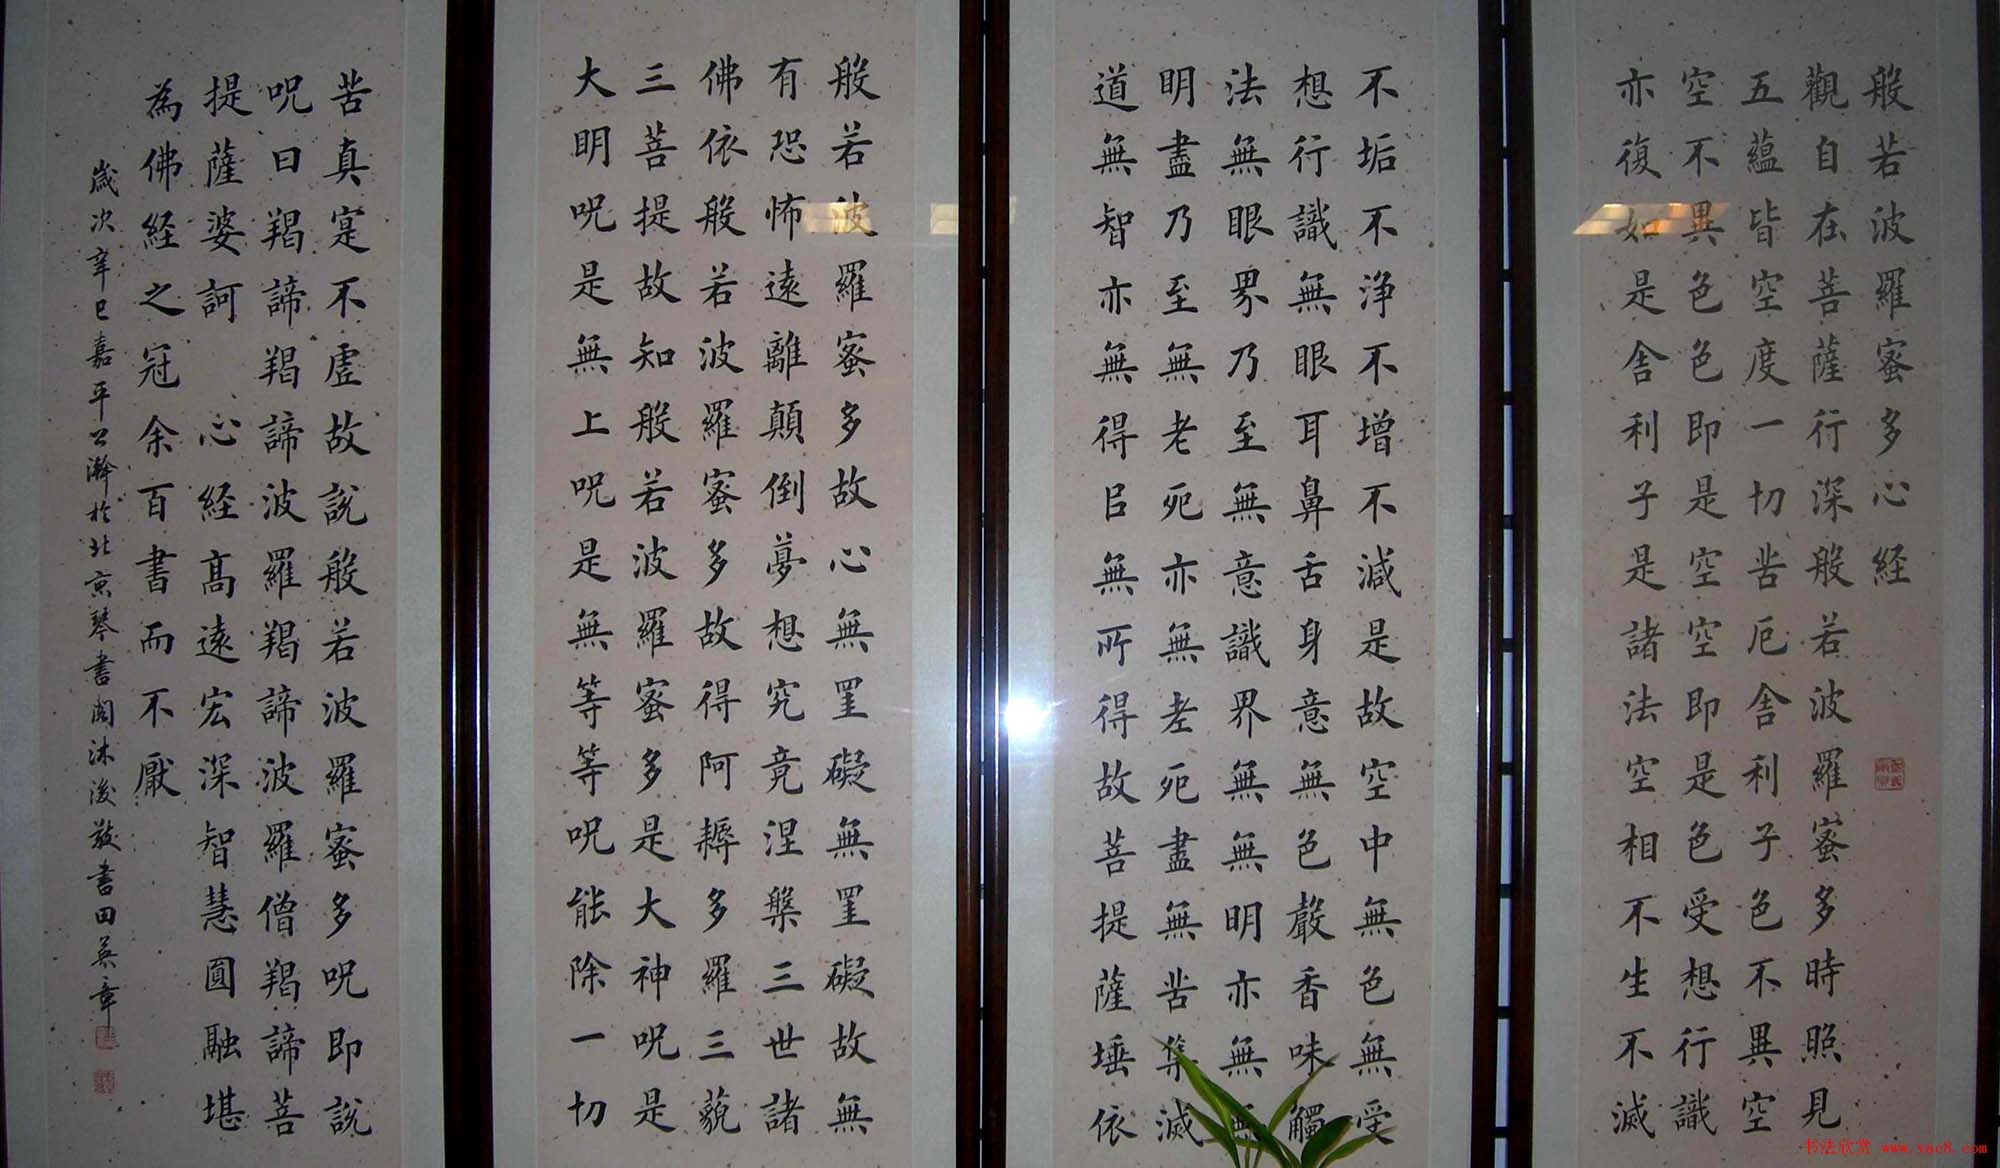 般若波羅蜜多心経
觀自在菩薩行深般若波羅蜜多時照見
五蘊皆空度一切苦厄舍利子色不異空
空不異色色即是空空即是色受想行識
亦復如是舍利子是諸法空相不生不滅
不垢不浄不增不減是故空中無色無受
想行識無眼耳鼻舌身意無色聲香味觸
法無眼界乃至無意識界無無明亦無無
明盡乃至無老死亦無老死盡無苦集滅
道無智亦無得㠯無所得故菩提薩埵依
般若波羅蜜多故心無罣礙無罣礙故無
有恐怖遠離顛倒夢想究竟涅槃三世諸
佛依般若波羅蜜多故得阿耨多羅三藐
三菩提故知般若波羅蜜多是大神呪是
大明呪是無上呪是無等等呪能除一切
苦真寔不虛故說般若波羅蜜多呪即說
呪曰羯諦羯諦波羅羯諦波羅僧羯諦菩
提薩婆訶 心経高遠宏深智慧圓融堪
為佛経之冠余百書而不厭
歲次辛巳嘉平公瀚於北京琴書閣沐後敬書田英章
书法欣赏 www.yac8.com